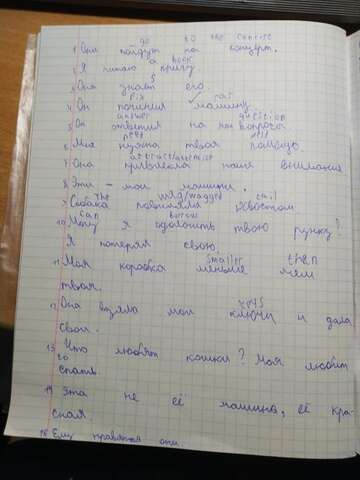 go to the concert
1 Они пойдут на концерт.
a book
2 Я читаю книгу
s
3 Она знает его.
fix car
4 Он починил машину.
answer question
5 Он ответил на мой вопрос.
need help
6 Мне нужна твоя помощь.
attract
7 Она привлекла наше внимание.
8 Эти - мои машинки.
The wag/wagged tail
9 Собака повиляла хвостом.
can borrow
10 Могу я одолжить твою ручку?
Я потерял свою.
smaller than
11 Моя коробка меньше чем
твоя.
keys
12 Она взяла мои ключи и дала
свои.
13 Что любят кошки? Моя любит
to
спать.
14 Эта не её машина, её кра-
сная.
15 Ему нравятся они.